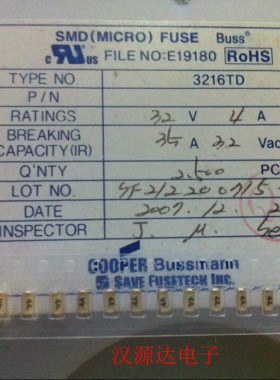 SMD(MICRO) FUSE Buss
c RU us FILE NO:E19180 RoHS
TYPE NO. 3216TD
P/N
RATINGS 32 V 4 A
BREAKING
CAPACITY(IR) 35 A 32 Vac
Q'NTY 2.500 PC
LOT NO.
DATE 2007.12.
INSPECTOR J. M.
COOPER Bussmann
SAVE FUSETECH INC.
汉源达电子